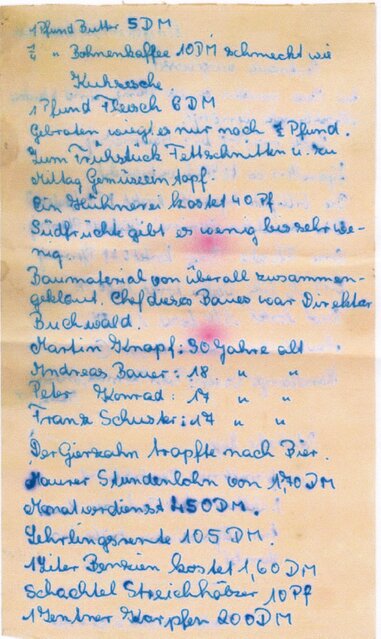 1 Pfund Butter 5 DM
1/4 " Bohnenkaffee 10 DM schmeckt wie
1 Pfund Fleisch 6 DM
Gebraten wiegt es nur noch Pfund.
Zum Frühstück Fettschnitten u. zu
Mittag Gemüseeintopf.
Ein Hühnerei kostet 40 Pf.
Südfrüchte gibt es wenig bis sehr we-
nig
Baumaterial von überall zusammen-
geklaut. Chef dieses Baues war Direktor
Buchwald.
Martin Knapf: 30 Jahre alt
Andreas Bauer: 18 " "
Peter Konrad: 17 " "
Frank Schuster: 17 " "
Der Gierzahn tropfte nach Bier.
Maurer Stundenlohn von 1,70 DM
Monatverdienst 450 DM.
105 DM.
1 Liter Benzien kostet 1,60 DM
Schachtel Streichhölzer 10 Pf
1 Zentner Karpfen 200 DM